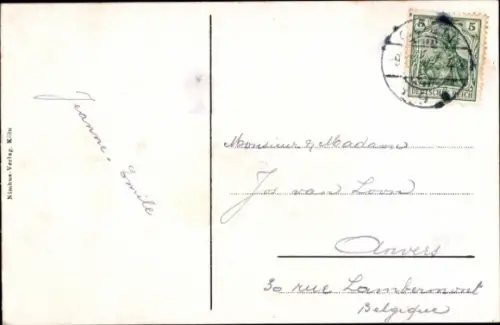 5 5
DEUTSCHES REICH
Jeanne. Emile
Nimbus-Verlag, Köln
Monsieur & Madame
Jos van Loon
Anvers
30 rue Lambermont
Belgique